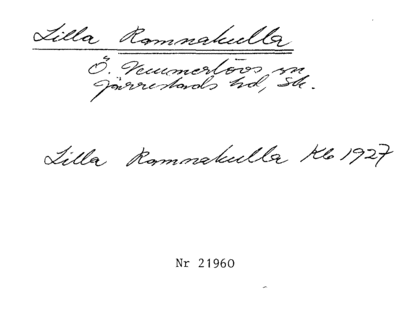 Lilla Ramnakulla
Ö. Vemmerlövs sn
Järrestads hd, Sk.
Lilla Ramnakulla Kb 1927
Nr 21960